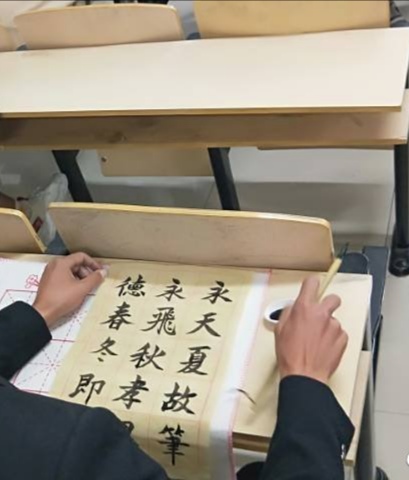 永天夏故筆
永飛秋孝
德春冬即